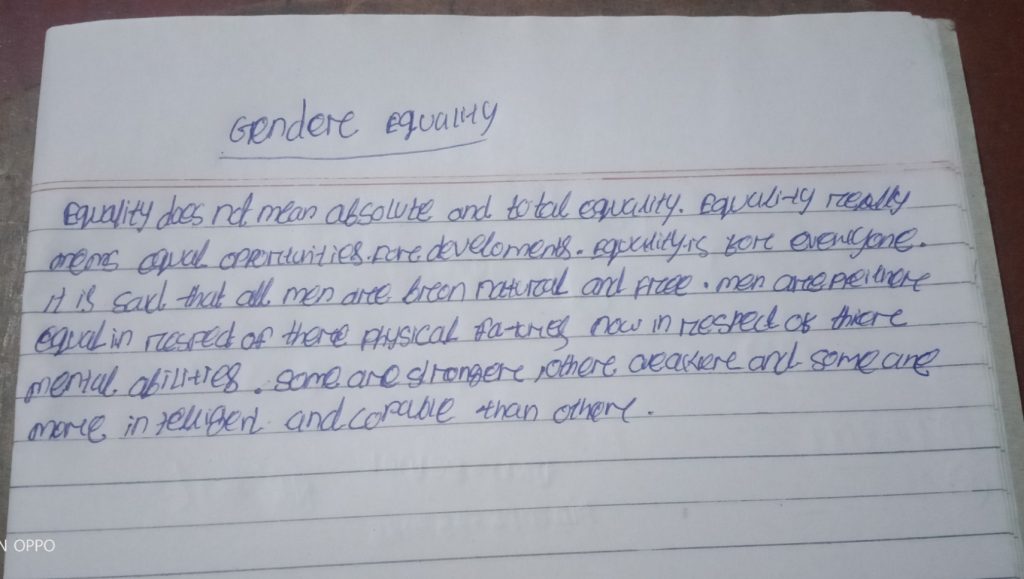 Gendere equality
Equality does not mean absolute and total equality. Equality really
means equal opertunities fore develoments. equality is fore everyone.
it is said that all men are breen natural and free. men are neithere
equal in respect of there physical fatries now in respect of there
mental abilities. some are strongere, othere weakere and some are
more intelligent and capable than othere.
N OPPO